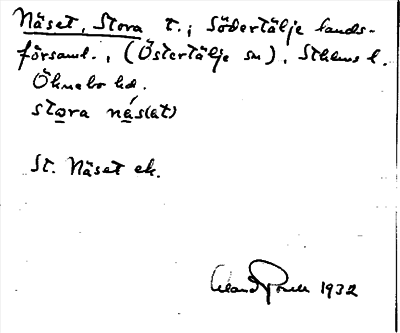 Näset, Stora t. i Södertälje lands-
församl., (Östertälje sn), Sthlms l.
Öknebo hd.
stora näs(ət)
St. Näset ek.
1932